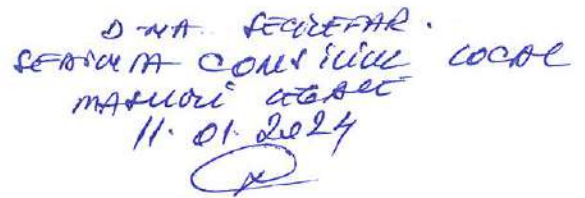 D-NA SECRETAR.
SEDINTA CONSILIUL LOCAL
MASURI LEGALE
11.01.2024